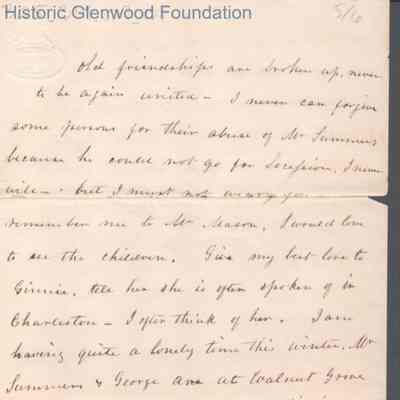 Historic Glenwood Foundation
5/10
old friendships are broken up, never
to be again united - I never can forgive
some persons for their abuse of Mr Summers
because he could not go for Secession, I never
will - but I must not weary you
remember me to Mr Mason, I would love
to see the children. Give my best love to
Ginnie, tell her she is often spoken of in
Charleston - I often think of her. I am
having quite a lonely time this winter, Mr
Summers & George are at Walnut Grove